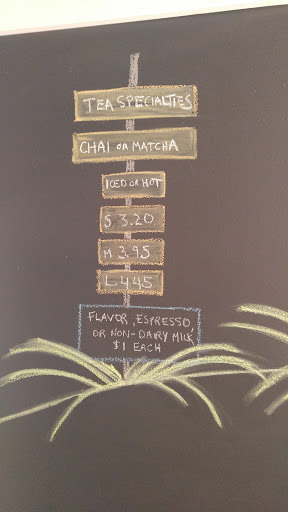 TEA SPECIALTIES
CHAI OR MATCHA
ICED OR HOT
S 3.20
M 3.95
L 4.45
FLAVOR, ESPRESSO,
OR NON-DAIRY MILK
$1 EACH